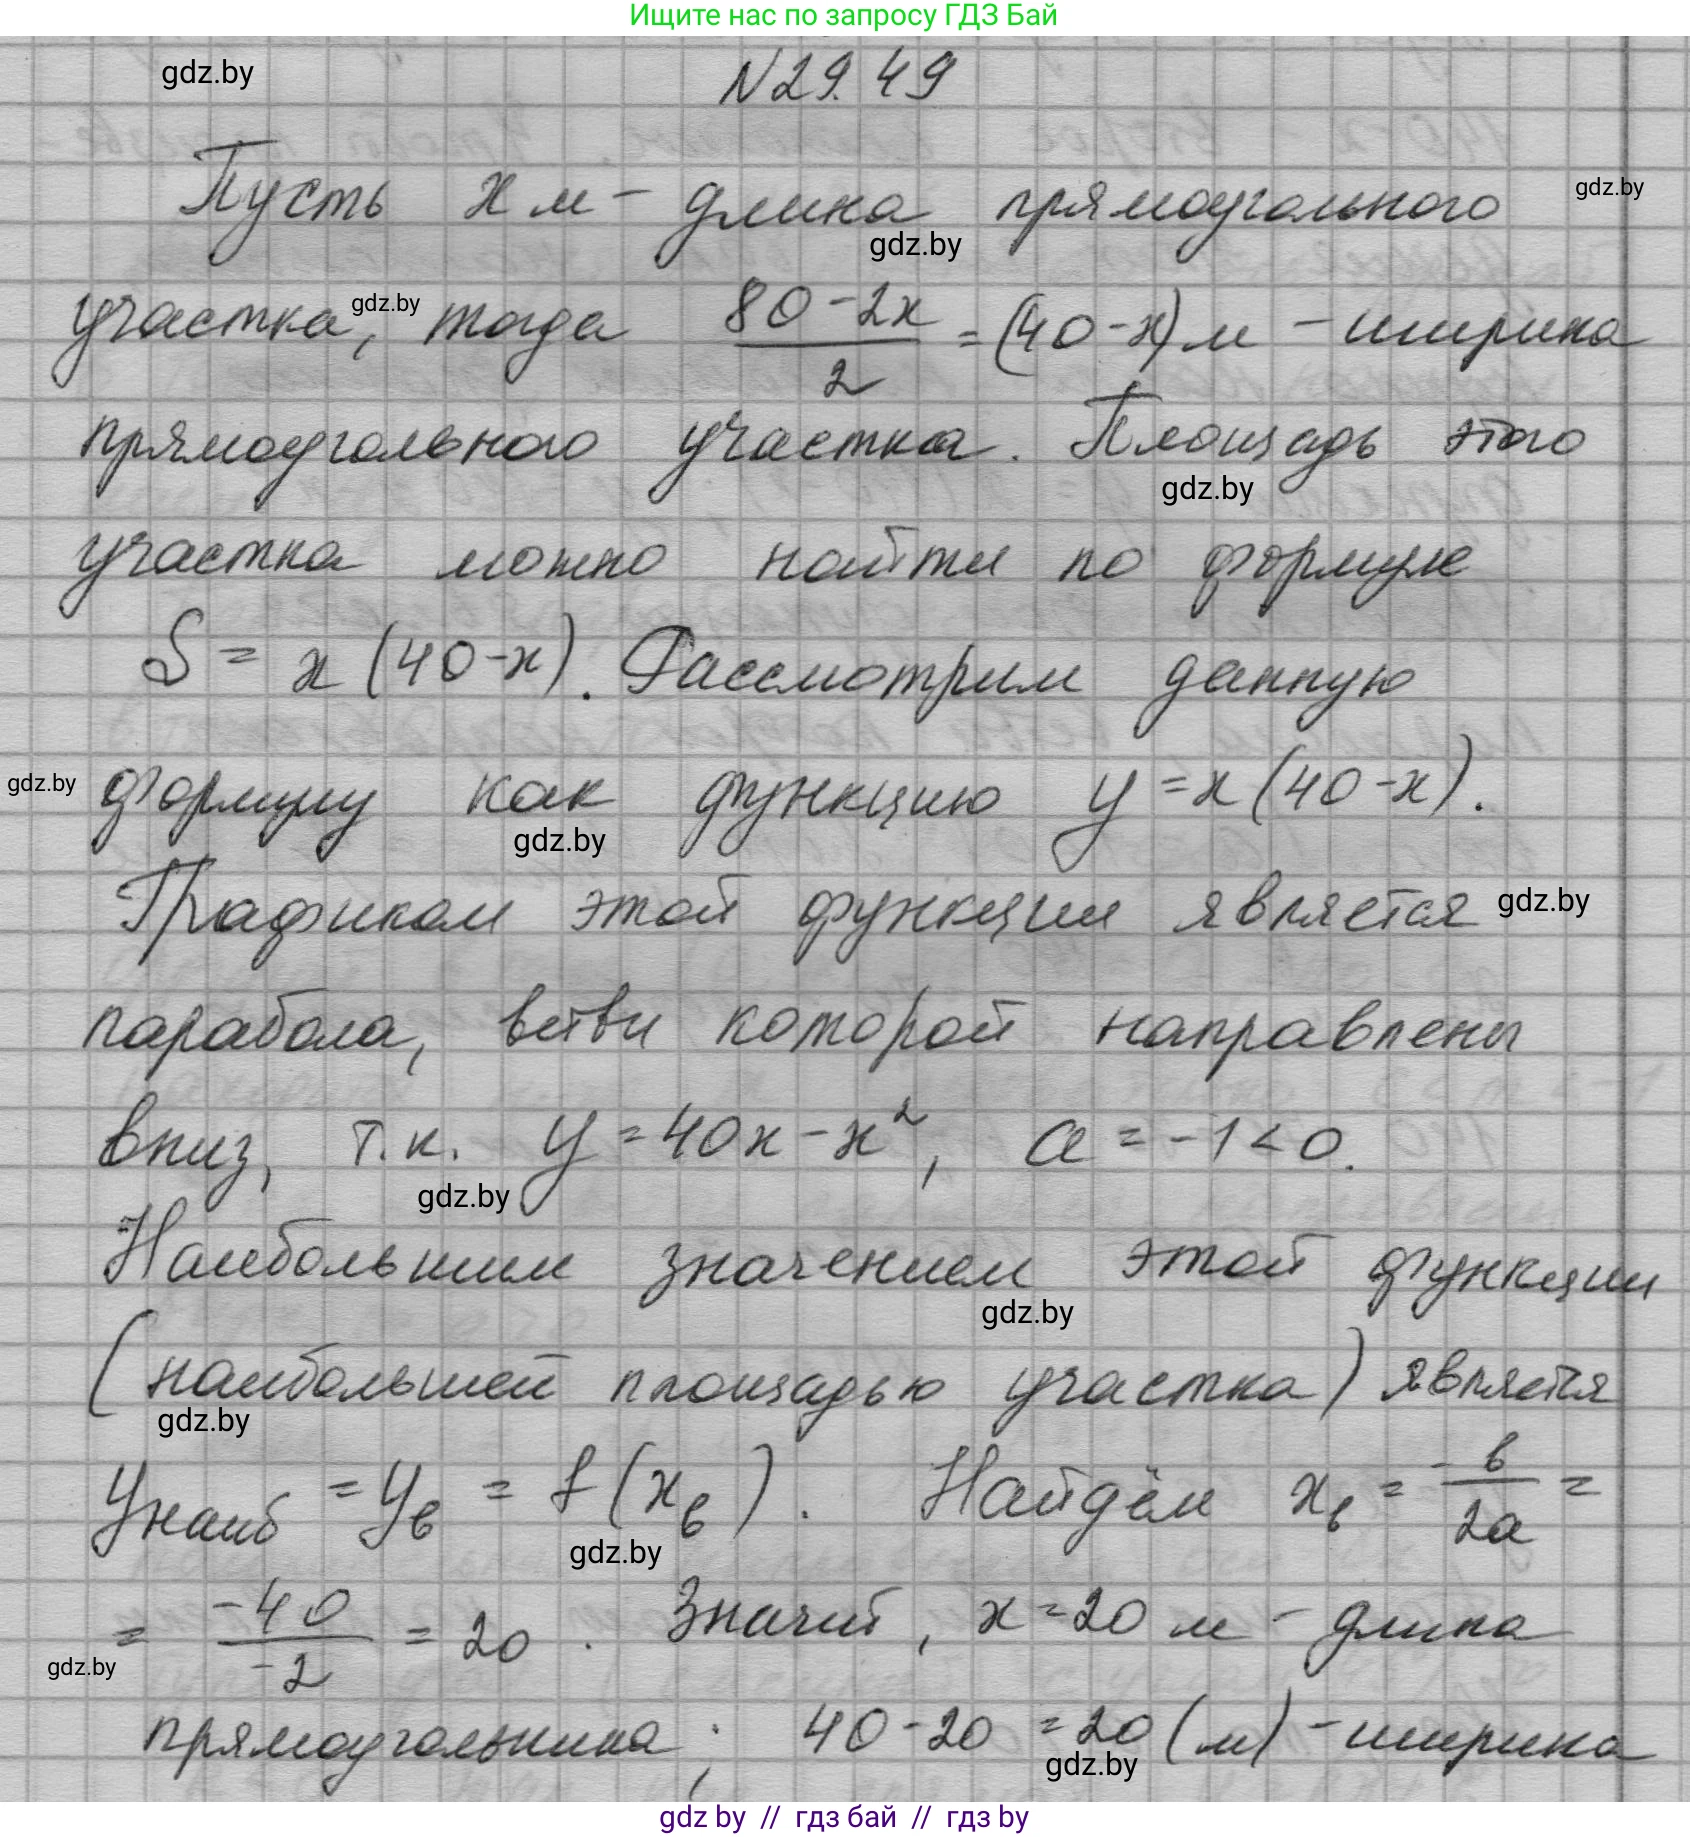 Ищите нас по запросу ГДЗ Бай
gdz.by
N29.49
Пусть x м - длина прямоугольного
gdz.by
gdz.by
участка, тогда (80-2x)/2 = (40-x) м - ширина
gdz.by
прямоугольного участка. Площадь этого
gdz.by
участка можно найти по формуле
S = x(40-x). Рассмотрим данную
формулу как функцию y = x(40-x).
gdz.by
gdz.by
Графиком этой функции является
gdz.by
парабола, ветви которой направлены
вниз, т.к. y = 40x - x², a = -1 < 0.
gdz.by
Наибольшим значением этой функции
gdz.by
(наибольшей площадью участка) является
gdz.by
yнаиб = yв = f(xв). Найдём xв = -в/2a =
gdz.by
= -40/-2 = 20. Значит, x = 20 м - длина
gdz.by
прямоугольника; 40-20 = 20 (м) - ширина
gdz.by
gdz by // гдз бай // гдз by